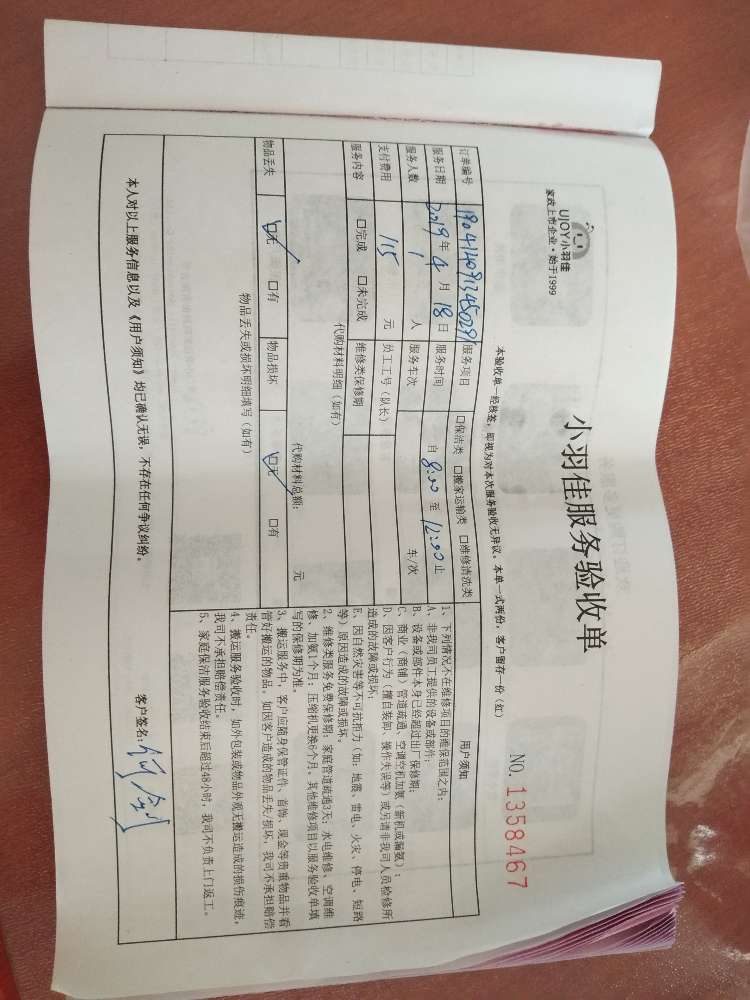 UJOY小羽佳
家政上市企业·始于1999
小羽佳服务验收单
NO. 1358467
本验收单一经核签,即视为对本次服务验收无异议。本单一式两份,客户留存一份(红)
订单编号 190414091345029 服务项目 □保洁类 □搬家运输类 □维修清洗类
服务日期 2019年4月18日 服务时间 自 8:00 至 12:00 止
服务人数 1 人 服务车次 车/次
支付费用 115 元 员工工号(队长)
服务内容 □完成 □未完成 维修类保修期
代购材料明细(如有)
代购材料总额: 元
物品丢失 □无 □有 物品损坏 □无 □有
物品丢失或损坏明细填写(如有)
用户须知
1、下列情况不在维修项目的维保范围之内:
A、非我司员工提供的设备或部件;
B、设备或部件本身已经超过出厂保修期;
C、商业(商铺)管道疏通、空调空机加氨(新机或漏氨);
D、因客户行为(擅自装卸、操作失误等)或另请非我司人员检修所
造成的故障或损坏;
E、因自然灾害等不可抗拒力(如:地震、雷电、火灾、停电、短路
等)原因造成的故障或损坏。
2、维修类服务免费保修期:家庭管道疏通3天;水电维修、空调维
修、加氨1个月;压缩机更换6个月。其他维修项目以服务验收单填
写的保修期为准。
3、搬运服务中,客户应随身保管证件、首饰、现金等贵重物品并看
管好搬运的物品。如因客户造成的物品丢失/损坏,我司不承担赔偿
责任。
4、搬运服务验收时,如外包装或物品外观无搬运造成的损伤痕迹,
我司不承担赔偿责任。
5、家庭保洁服务验收结束后超过48小时,我司不负责上门返工。
本人对以上服务信息以及《用户须知》均已确认无误,不存在任何争议纠纷。
客户签名: